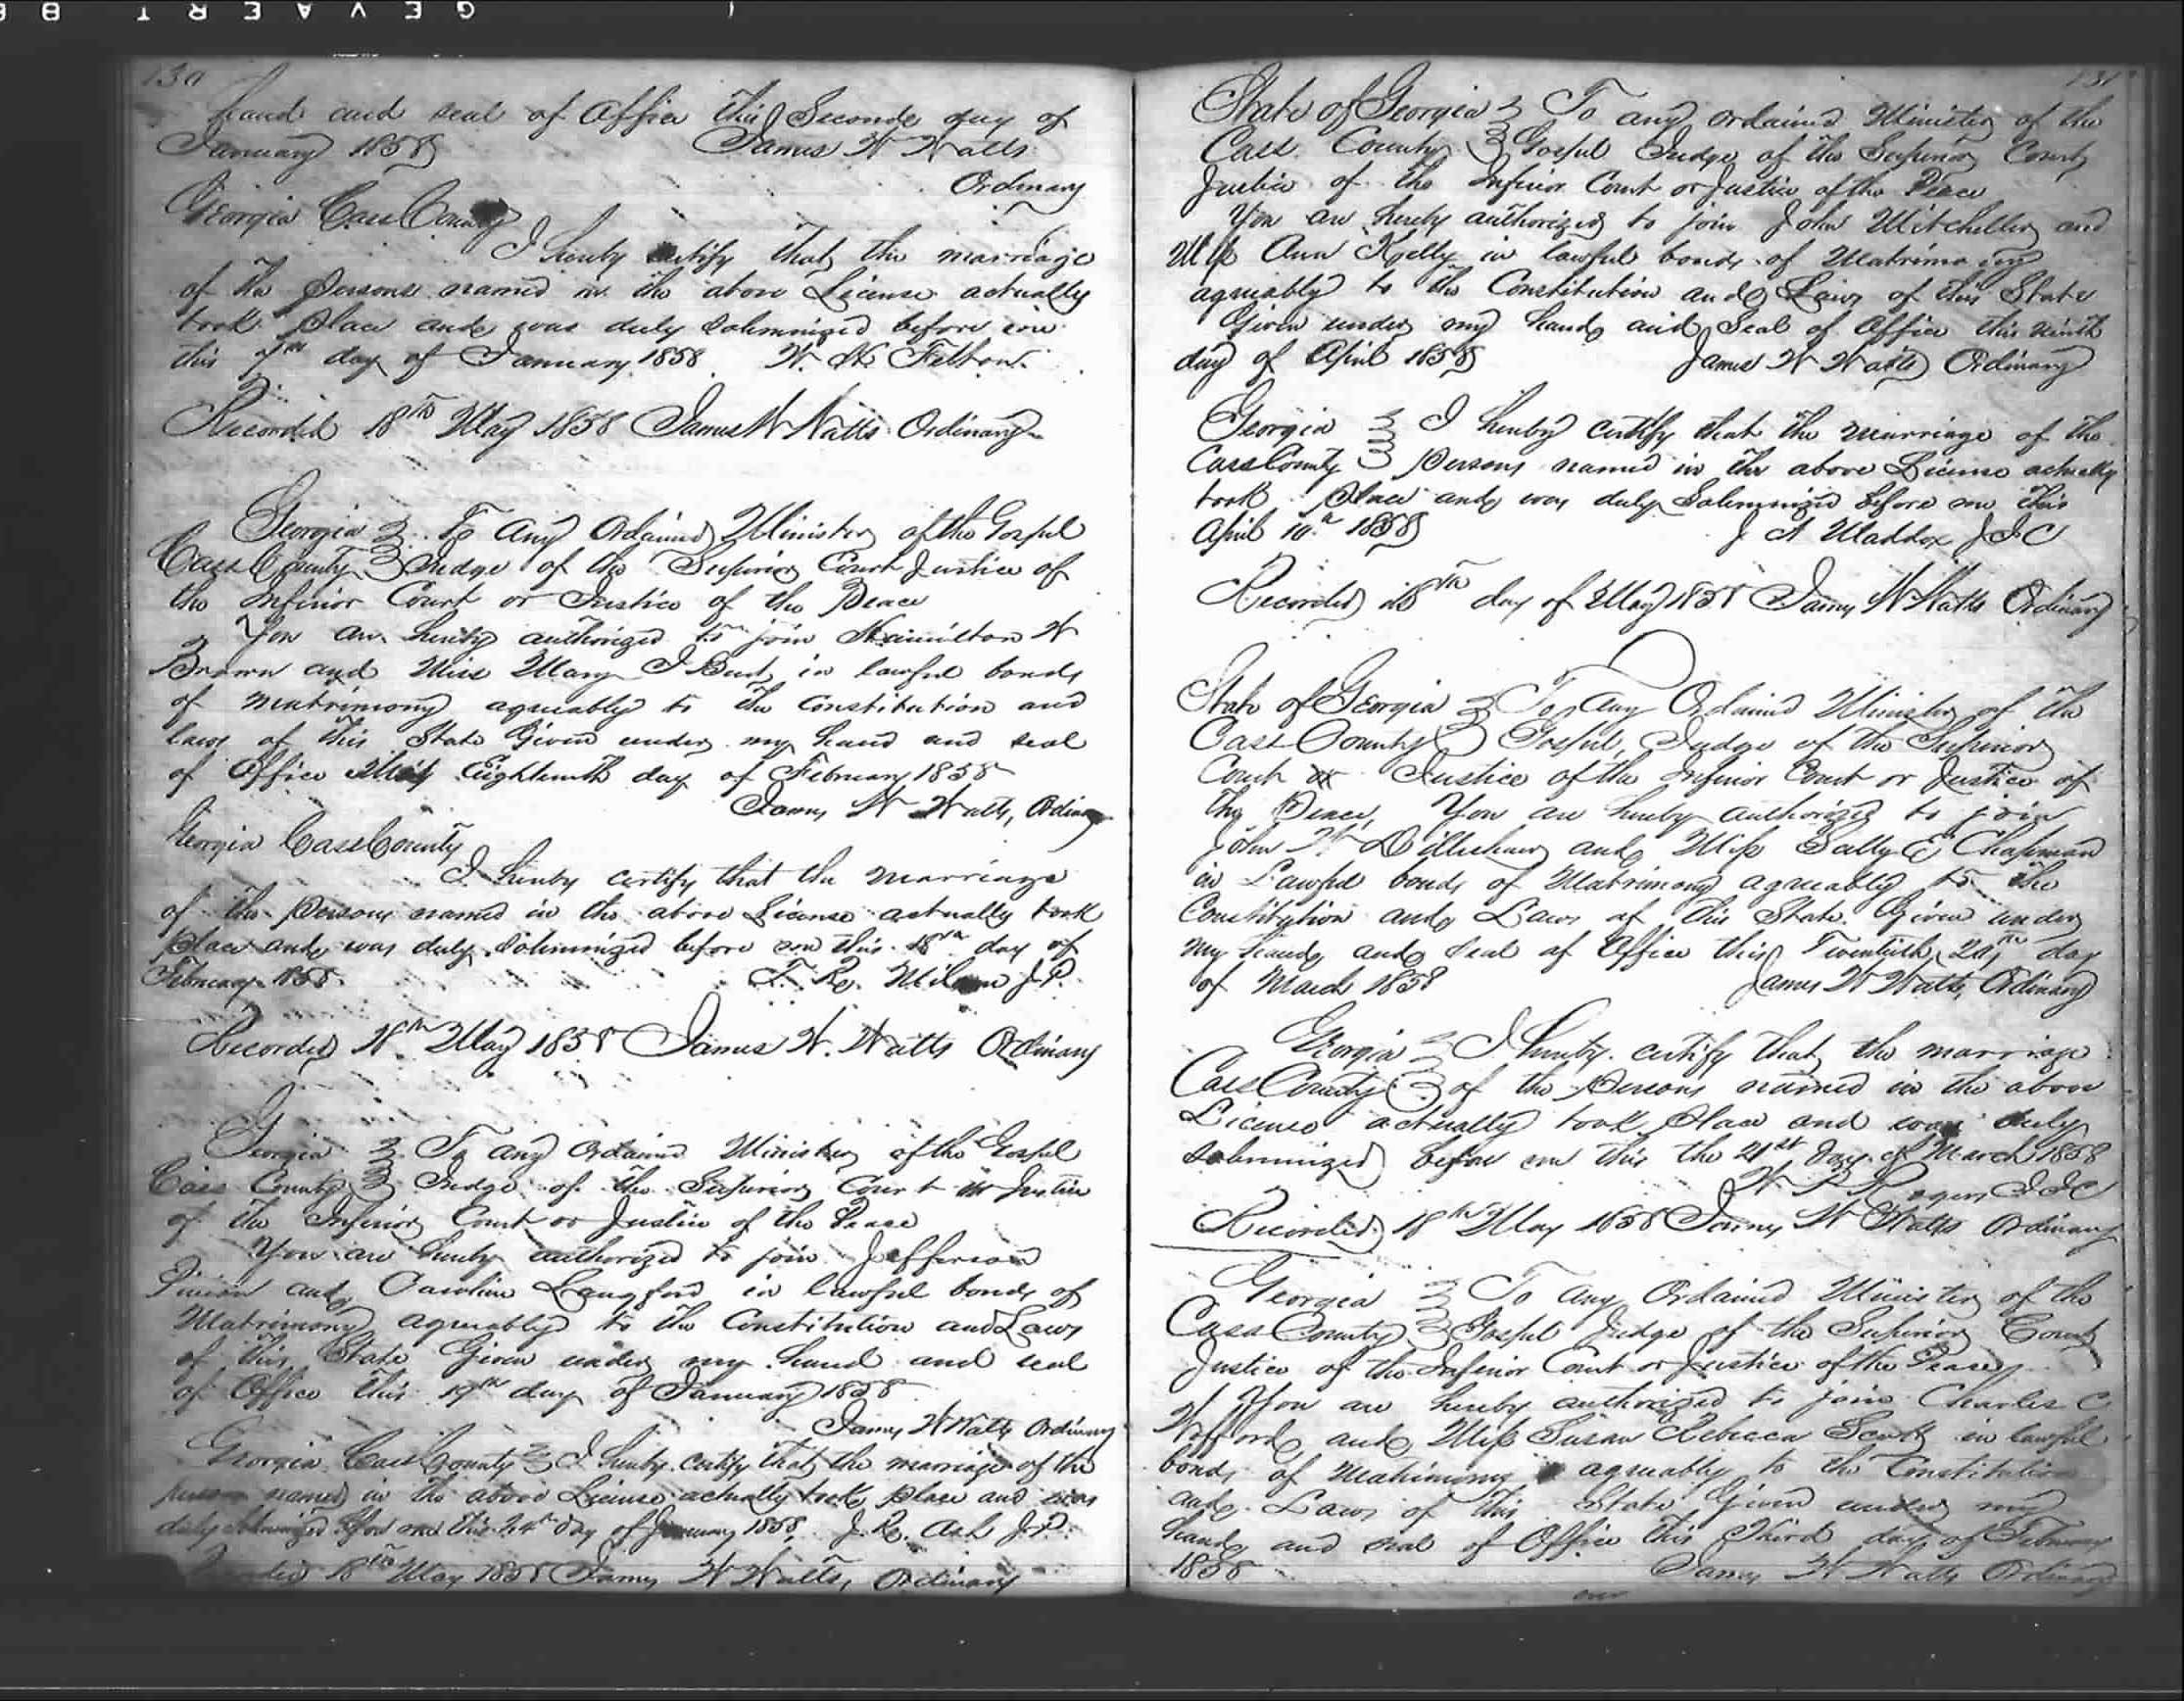 GEVAERT
130
hand and seal of Office this Seconde day of
January 1858 James W Watts
Ordinary
Georgia Cass County
I hereby certify that the marriage
of the Persons named in the above License actually
took place and was duly Solemnized before me
this 7th day of January 1858 W. H. Felton.
Recorded 18th May 1858 James W Watts Ordinary
Georgia To any Ordained Minister of the Gospel
Cass County Judge of the Superior Court Justice of
the Inferior Court or Justice of the Peace
You are hereby authorized to join Hamilton W
Brown and Miss Mary J in lawful bonds
of matrimony agreeably to the Constitution and
laws of this State Given under my hand and seal
of Office this Eighteenth day of February 1858
James W Watts, Ordinary
Georgia Cass County
I hereby certify that the marriage
of the Persons named in the above License actually took
place and was duly Solemnized before me this 18th day of
February 1858. T. R. J.P.
Recorded 18th May 1858 James W. Watts Ordinary
Georgia To any Ordained Minister of the Gospel
Cass County Judge of the Superior Court Justice
of the Inferior Court or Justice of the Peace
You are hereby authorized to join Jefferson
and Caroline Langford in lawful bonds of
Matrimony agreeably to the Constitution and Laws
of this State Given under my hand and seal
of Office this 19th day of January 1858
James W Watts Ordinary
Georgia Cass County I hereby certify that the marriage of the
person named in the above License actually took place and was
duly solemnized before me this 24th day of January 1858. J. R. Ash J.P.
Recorded 18th May 1858 James W Watts, Ordinary
131
State of Georgia To any ordained Minister of the
Cass County Gospel Judge of the Superior Court
Justice of the Inferior Court or Justice of the Peace
You are hereby authorized to join John Mitchell and
Miss Ann Kelly in lawful bonds of Matrimony
agreeably to the Constitution and Laws of this State
Given under my hand and Seal of Office this ninth
day of April 1858 James W Watts Ordinary
Georgia I hereby certify that the marriage of the
Cass County Persons named in the above License actually
took place and was duly Solemnized before me this
April 10th 1858 J A Maddox J I C
Recorded 18th day of May 1858 James W Watts Ordinary
State of Georgia To any Ordained Minister of the
Cass County Gospel Judge of the Superior
Court or Justice of the Inferior Court or Justice of
the Peace, You are hereby authorized to join
John Dilleshaw and Miss Sally E Chapman
in Lawful bonds of Matrimony agreeably to the
Constitution and Laws of this State. Given under
my hand and Seal of Office this Twentieth 20th day
of March 1858 James W Watts, Ordinary
Georgia I hereby certify that the marriage
Cass County of the Persons named in the above
License actually took place and was duly
solemnized before me this the 21st day of March 1858
Rogers J I C
Recorded 18th May 1858 James W Watts Ordinary
Georgia To any Ordained Minister of the
Cass County Gospel Judge of the Superior Court
Justice of the Inferior Court or Justice of the Peace
You are hereby authorized to join Charles C
Wofford and Miss Susan Rebecca Scott in lawful
bonds of matrimony agreeably to the Constitution
and Laws of this State, Given under my
hand and seal of Office this Third day of February
1858 James W Watts Ordinary
over